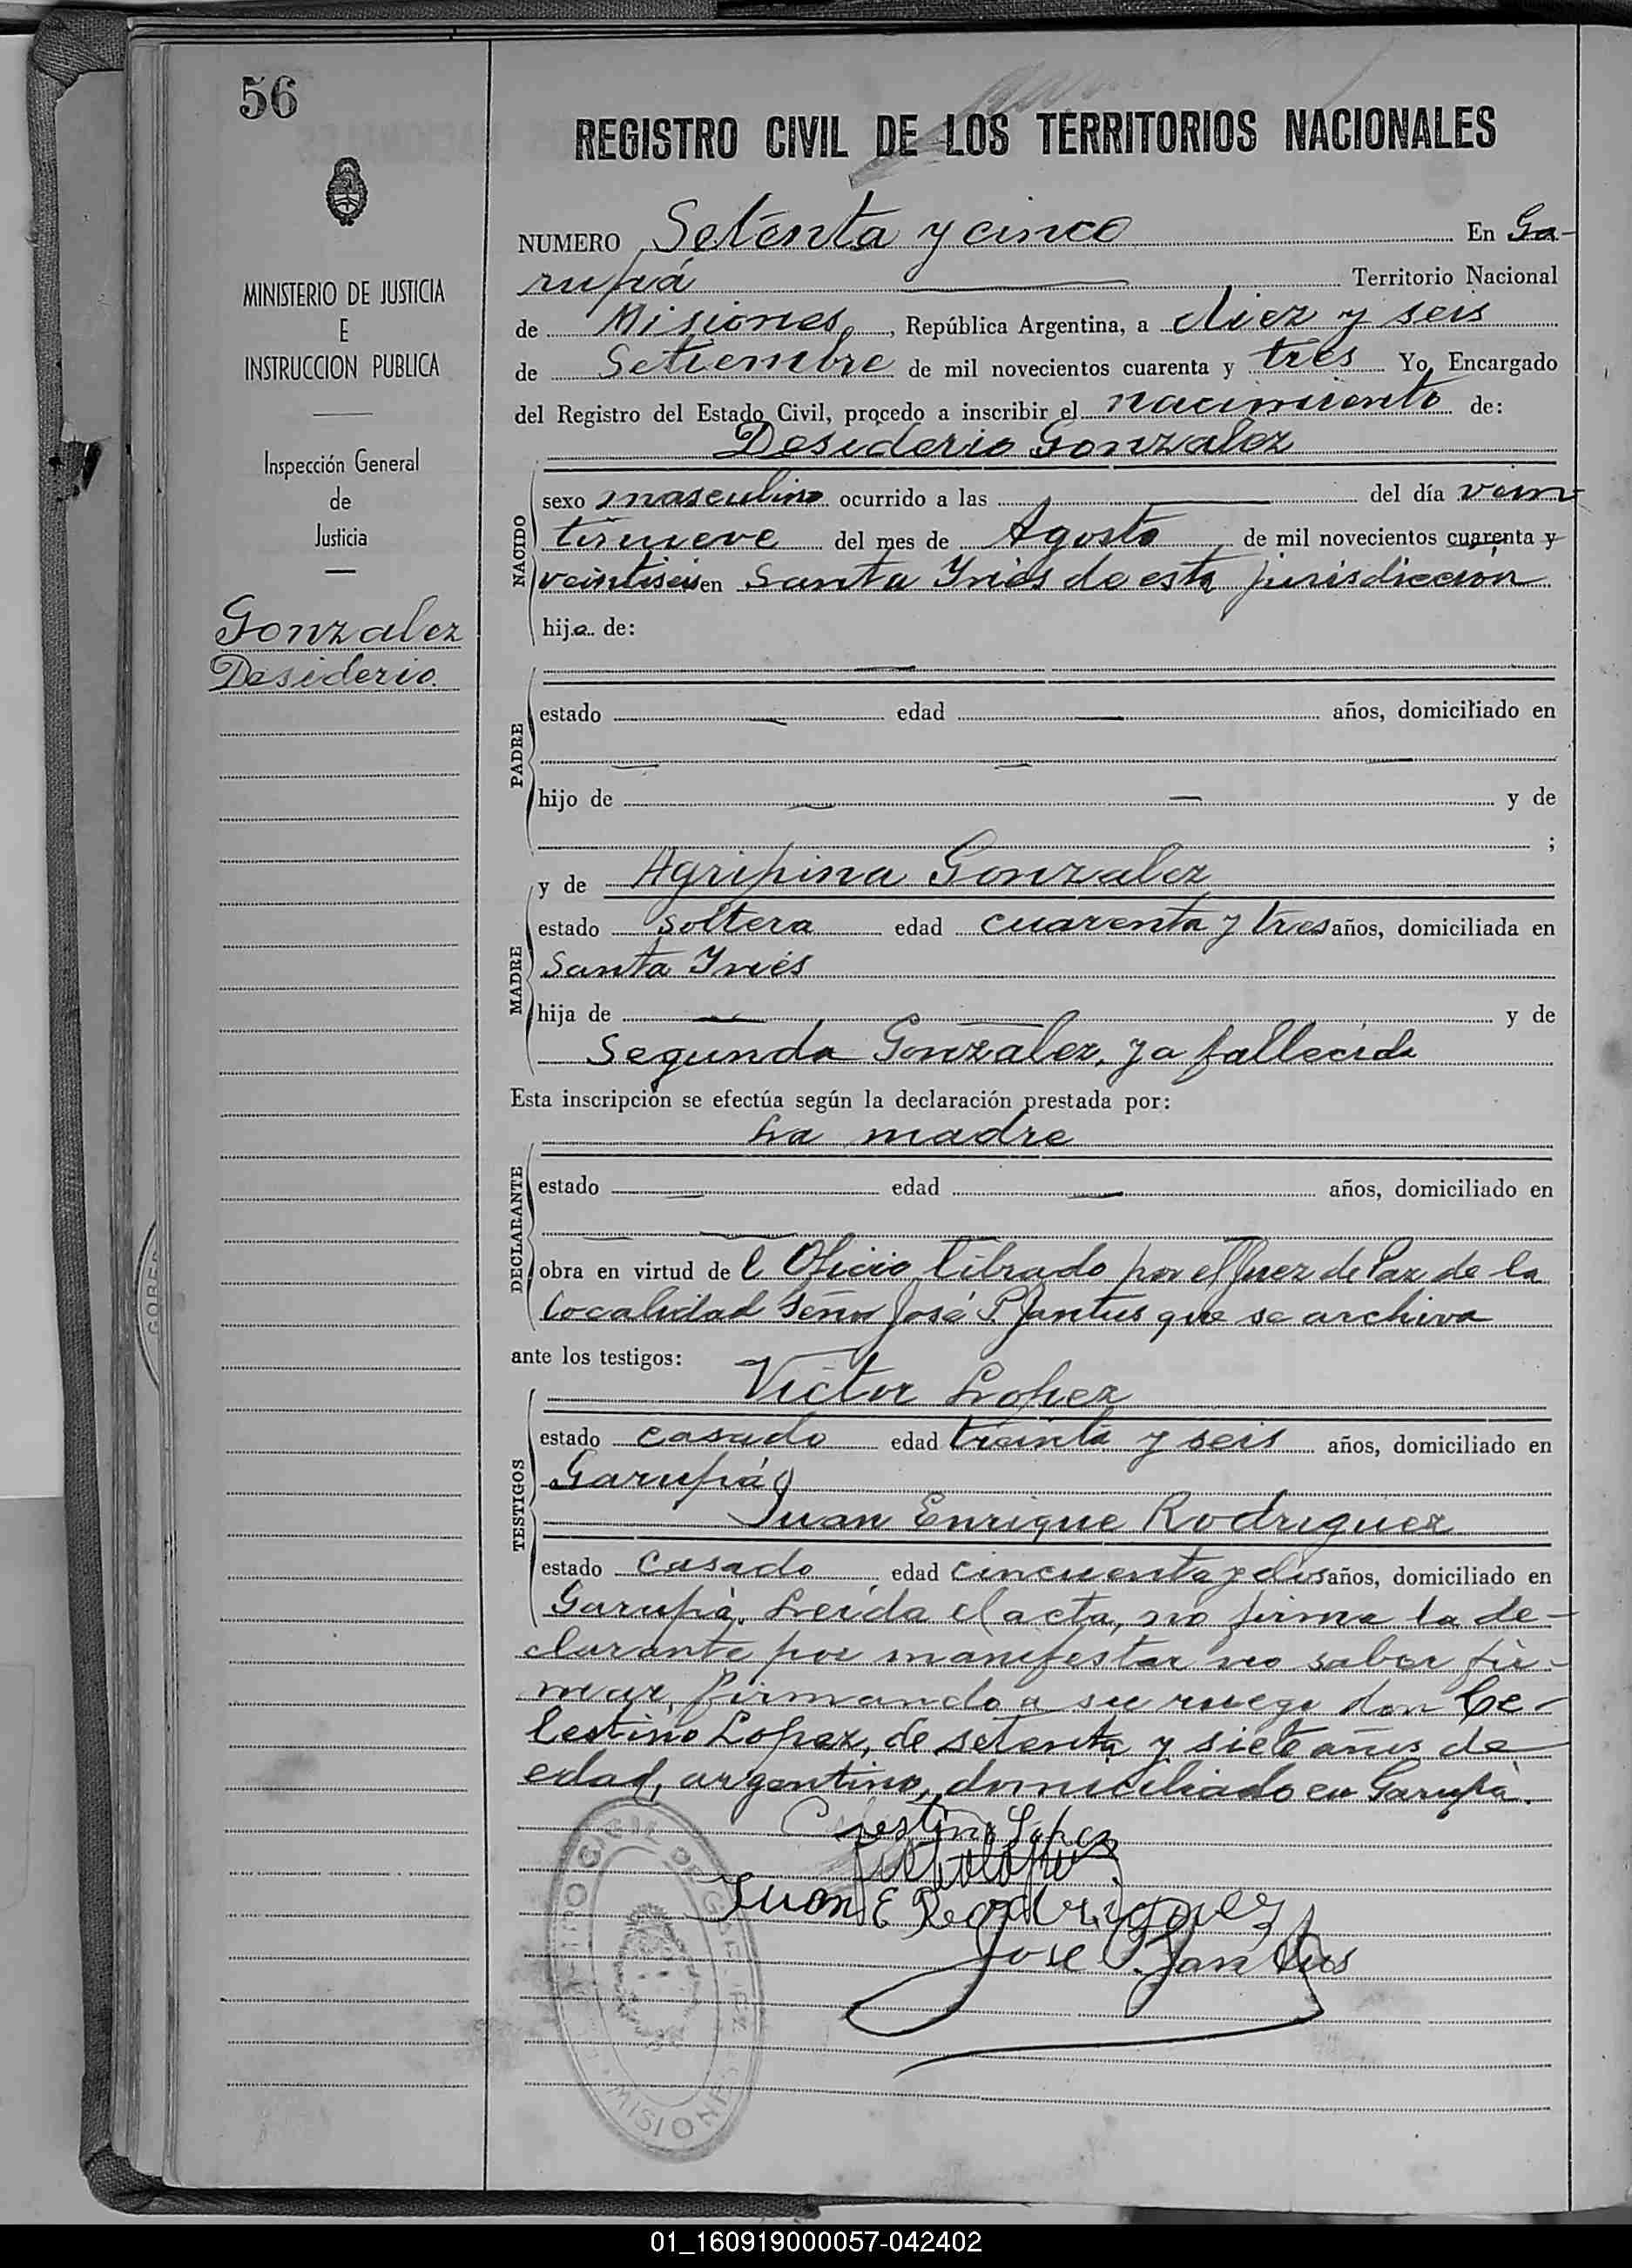 56
REGISTRO CIVIL DE LOS TERRITORIOS NACIONALES
MINISTERIO DE JUSTICIA
E
INSTRUCCION PUBLICA
Inspección General
de
Justicia
Gonzalez
Desiderio
NUMERO Setenta y cinco En Ga-
rupá Territorio Nacional
de Misiones, República Argentina, a diez y seis
de Setiembre de mil novecientos cuarenta y tres Yo, Encargado
del Registro del Estado Civil, procedo a inscribir el nacimiento de:
Desiderio Gonzalez
NACIDO
sexo masculino ocurrido a las del día vein-
tinueve del mes de Agosto de mil novecientos cuarenta y
veintiseis en Santa Ynés de esta jurisdiccion
hijo de:
PADRE
estado edad años, domiciliado en
hijo de y de
;
MADRE
y de Agripina Gonzalez
estado soltera edad cuarenta y tres años, domiciliada en
Santa Ynés
hija de y de
Segunda Gonzalez, ya fallecida
Esta inscripción se efectúa según la declaración prestada por:
La madre
DECLARANTE
estado edad años, domiciliado en
obra en virtud de l Oficio librado por el Juez de Paz de la
localidad Señor José P. Jantus que se archiva
ante los testigos:
TESTIGOS
Victor Lopez
estado casado edad treinta y seis años, domiciliado en
Garupá
Juan Enrique Rodriguez
estado casado edad cincuenta y dos años, domiciliado en
Garupá. Leida el acta, no firma la de-
clarante por manifestar no saber fir-
mar, firmando a su ruego don Ce-
lestino Lopez, de setenta y siete años de
edad, argentino, domiciliado en Garupá.
Celestino Lopez
Juan E Rodriguez
Jose P. Jantus
MISIONES
01_160919000057-042402